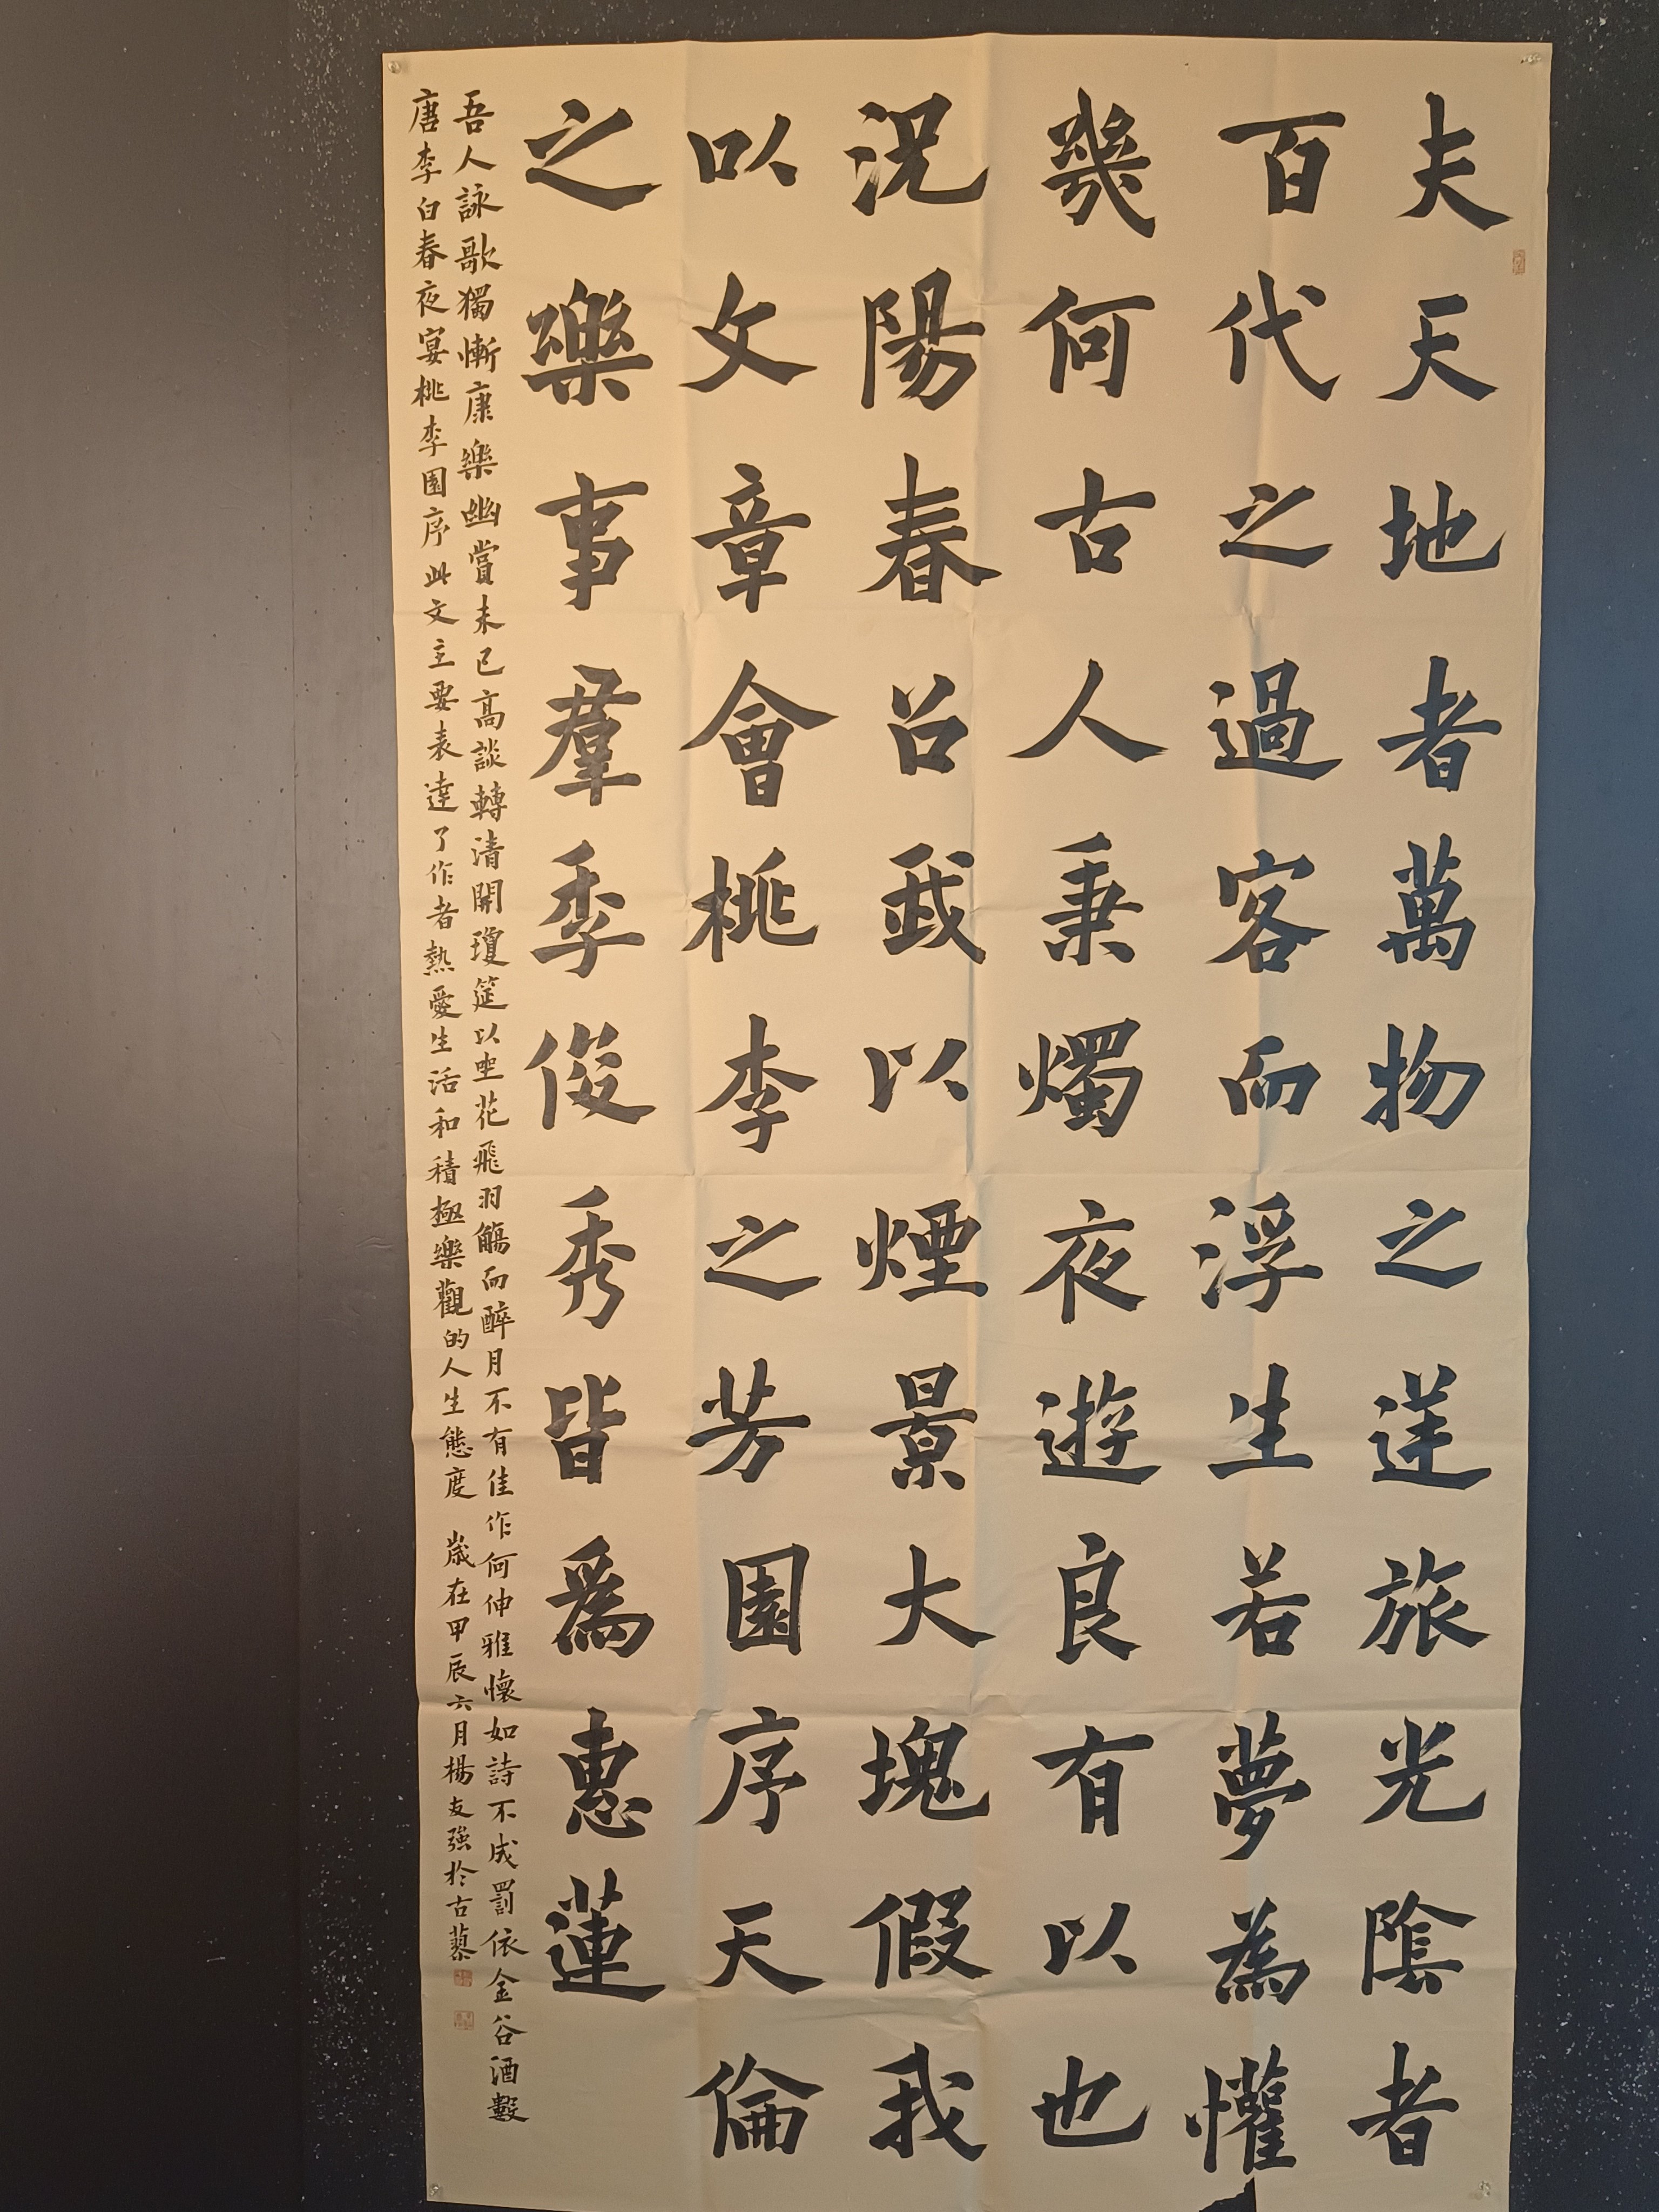 夫天地者萬物之逆旅光陰者
百代之過客而浮生若夢為懽
幾何古人秉燭夜遊良有以也
況陽春召我以煙景大塊假我
以文章會桃李之芳園序天倫
之樂事羣季俊秀皆為惠蓮
吾人詠歌獨慚康樂幽賞未已高談轉清開瓊筵以坐花飛羽觴而醉月不有佳作何伸雅懷如詩不成罰依金谷酒數
唐李白春夜宴桃李園序此文主要表達了作者熱愛生活和積極樂觀的人生態度 歲在甲辰六月楊友強於古蔡